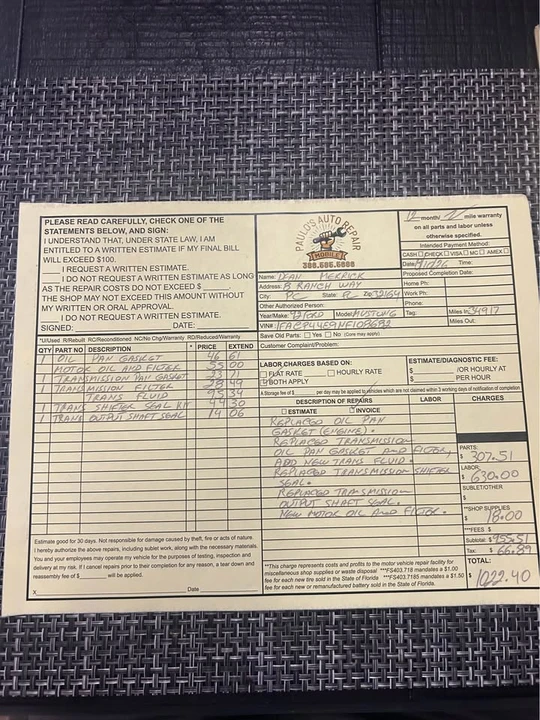 PLEASE READ CAREFULLY, CHECK ONE OF THE
STATEMENTS BELOW, AND SIGN:
I UNDERSTAND THAT, UNDER STATE LAW, I AM
ENTITLED TO A WRITTEN ESTIMATE IF MY FINAL BILL
WILL EXCEED $100.
I REQUEST A WRITTEN ESTIMATE.
I DO NOT REQUEST A WRITTEN ESTIMATE AS LONG
AS THE REPAIR COSTS DO NOT EXCEED $
THE SHOP MAY NOT EXCEED THIS AMOUNT WITHOUT
MY WRITTEN OR ORAL APPROVAL.
I DO NOT REQUEST A WRITTEN ESTIMATE.
SIGNED: DATE:
PAULO'S AUTO REPAIR
MOBILE
386.586.5898
12 month/ mile warranty
on all parts and labor unless
otherwise specified.
Intended Payment Method:
CASH CHECK VISA MC AMEX
Date: Time:
Name: DEAN MERRICK
Proposed Completion Date:
Address: 8 RANCH WAY
Home Ph:
City: PC State: FL Zip: 32164
Work Ph:
Other Authorized Person:
Phone:
Year/Make: 92 FORD Model: MUSTANG
Tag: Miles In: 34917
VIN#: 1FACP44E9NF103692
Miles Out:
Save Old Parts: Yes No (Core may apply)
Customer Complaint/Problem:
*U/Used R/Rebuilt RC/Reconditioned NC/No Chg/Warranty RD/Reduced/Warranty
QTY PART NO DESCRIPTION * PRICE EXTEND
1 OIL PAN GASKET 46 61
1 MOTOR OIL AND FILTER 55 00
1 TRANSMISSION PAN GASKET 23 71
1 TRANSMISSION FILTER 28 49
TRANS FLUID 95 34
1 TRANS SHIFTER SEAL KIT 44 30
1 TRANS OUTPUT SHAFT SEAL 14 06
LABOR CHARGES BASED ON:
FLAT RATE HOURLY RATE
BOTH APPLY
ESTIMATE/DIAGNOSTIC FEE:
$ /OR HOURLY AT
$ PER HOUR
A Storage fee of $ per day may be applied to vehicles which are not claimed within 3 working days of notification of completion
DESCRIPTION OF REPAIRS LABOR CHARGES
ESTIMATE INVOICE
REPLACED OIL PAN
GASKET (ENGINE).
REPLACED TRANSMISSION
OIL PAN GASKET AND FILTER,
ADD NEW TRANS FLUID.
REPLACED TRANSMISSION SHIFTER
SEAL.
REPLACED TRANSMISSION
OUTPUT SHAFT SEAL.
NEW MOTOR OIL AND FILTER.
PARTS:
$ 307.51
LABOR:
$ 630.00
SUBLET/OTHER
$
**SHOP SUPPLIES
$ 18.00
***FEES $
Subtotal: $ 955.51
Tax: $ 66.89
TOTAL:
$ 1022.40
Estimate good for 30 days. Not responsible for damage caused by theft, fire or acts of nature.
I hereby authorize the above repairs, including sublet work, along with the necessary materials.
You and your employees may operate my vehicle for the purposes of testing, inspection and
delivery at my risk. If I cancel repairs prior to their completion for any reason, a tear down and
reassembly fee of $ will be applied.
X Date
**This charge represents costs and profits to the motor vehicle repair facility for
miscellaneous shop supplies or waste disposal ***FS403.718 mandates a $1.00
fee for each new tire sold in the State of Florida ***FS403.7185 mandates a $1.50
fee for each new or remanufactured battery sold in the State of Florida.